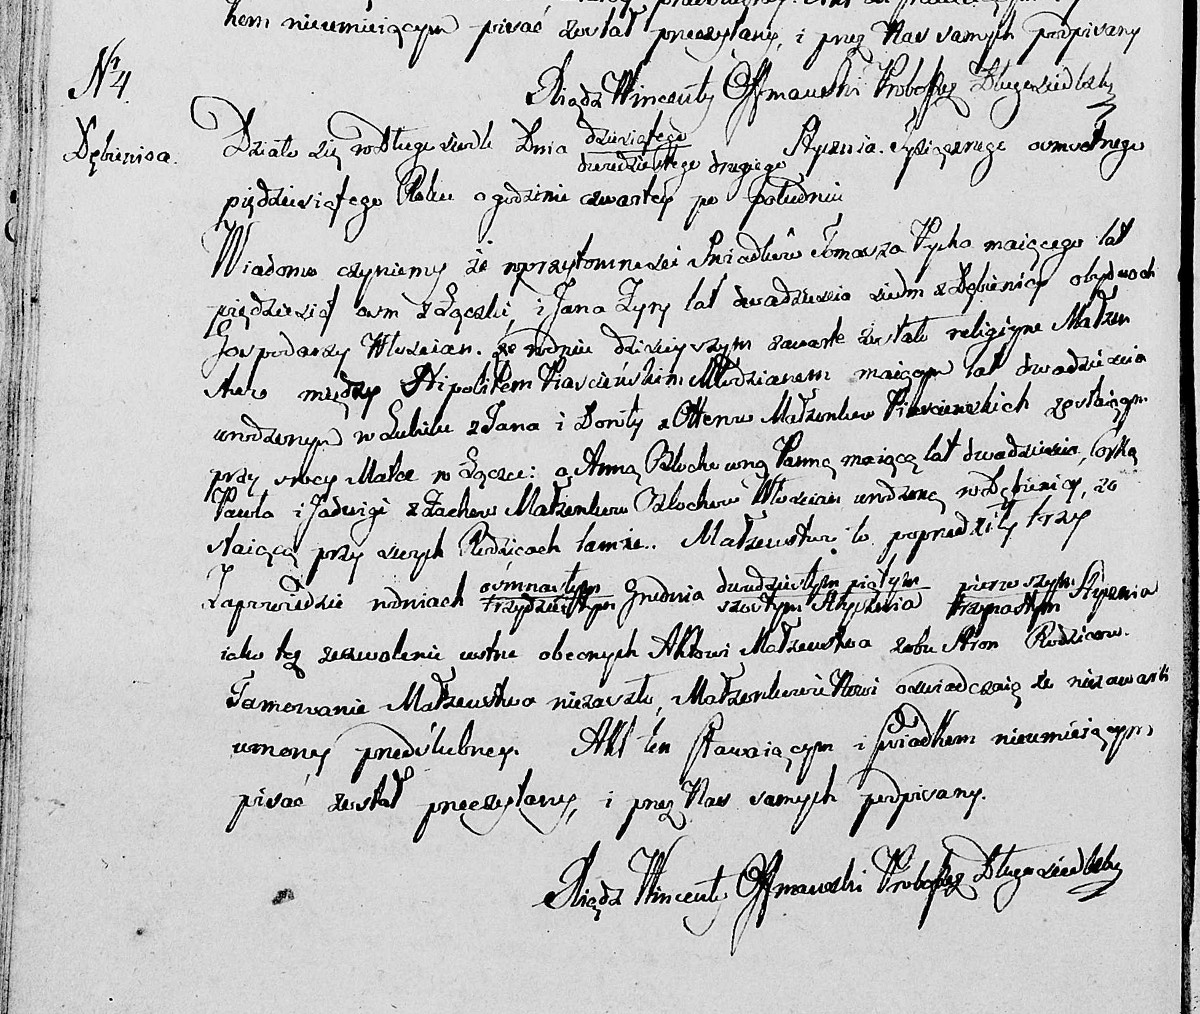 kem nieumiejącym pisać został przeczytany, i przez Nas samych podpisany
Nr 4
Xiądz Wincenty Offmański Proboszcz Długosiedlski
Dębienica.
Działo się w Długosiedle Dnia dziesiątego / dwudziestego drugiego Stycznia Tysiącznego osmsetnego
piędziesiątego Roku o godzinie czwartéj po Południu
Wiadomo czyniemy że w przytomności Świadków Tomasza Pycha maiącego lat
pięćdziesiąt osm z Łączki, i Jana Zyry lat dwadzieścia siedm z Dębienicy obydwoch
Gospodarzy Włościan. że w dniu dzisieyszym zawarte zostało religijne Małżeń
stwo między Hipolitem Piascińskim Młodzianem maiącym lat dwadzieścia
urodzonym w Lubilu z Jana i Doroty z Ottonów Małżonków Piascinskich zostaiącym
przy swey Matce w Łączce: a Anną Błochowną Panną maiącą lat dwadzieścia, Corką
Pawła i Jadwigi z Zachow Małżonków Błochów Włościan urodzoną w Dębienicy, zo
staiącą przy swych Rodzicach tamże. Małżeństwo to poprzedziły trzy
Zapowiedzie w dniach osmnastym / trzydziestym Grudnia dwudziestym piątym / szóstym Stycznia pierwszym / trzynastym Stycznia
iako też zezwolenie ustne obecnych Aktowi Małżeństwa z obu Stron Rodziców.
Tamowanie Małżeństwa niezaszło, Małżonkowie Nowi oświadczaią że niezawarli
umowy przedślubney. Akt ten Stawaiącym i Świadkom nieumieiącym
pisać został przeczytany, i przez Nas samych podpisany.
Xiądz Wincenty Offmański Proboszcz Długosiedlski